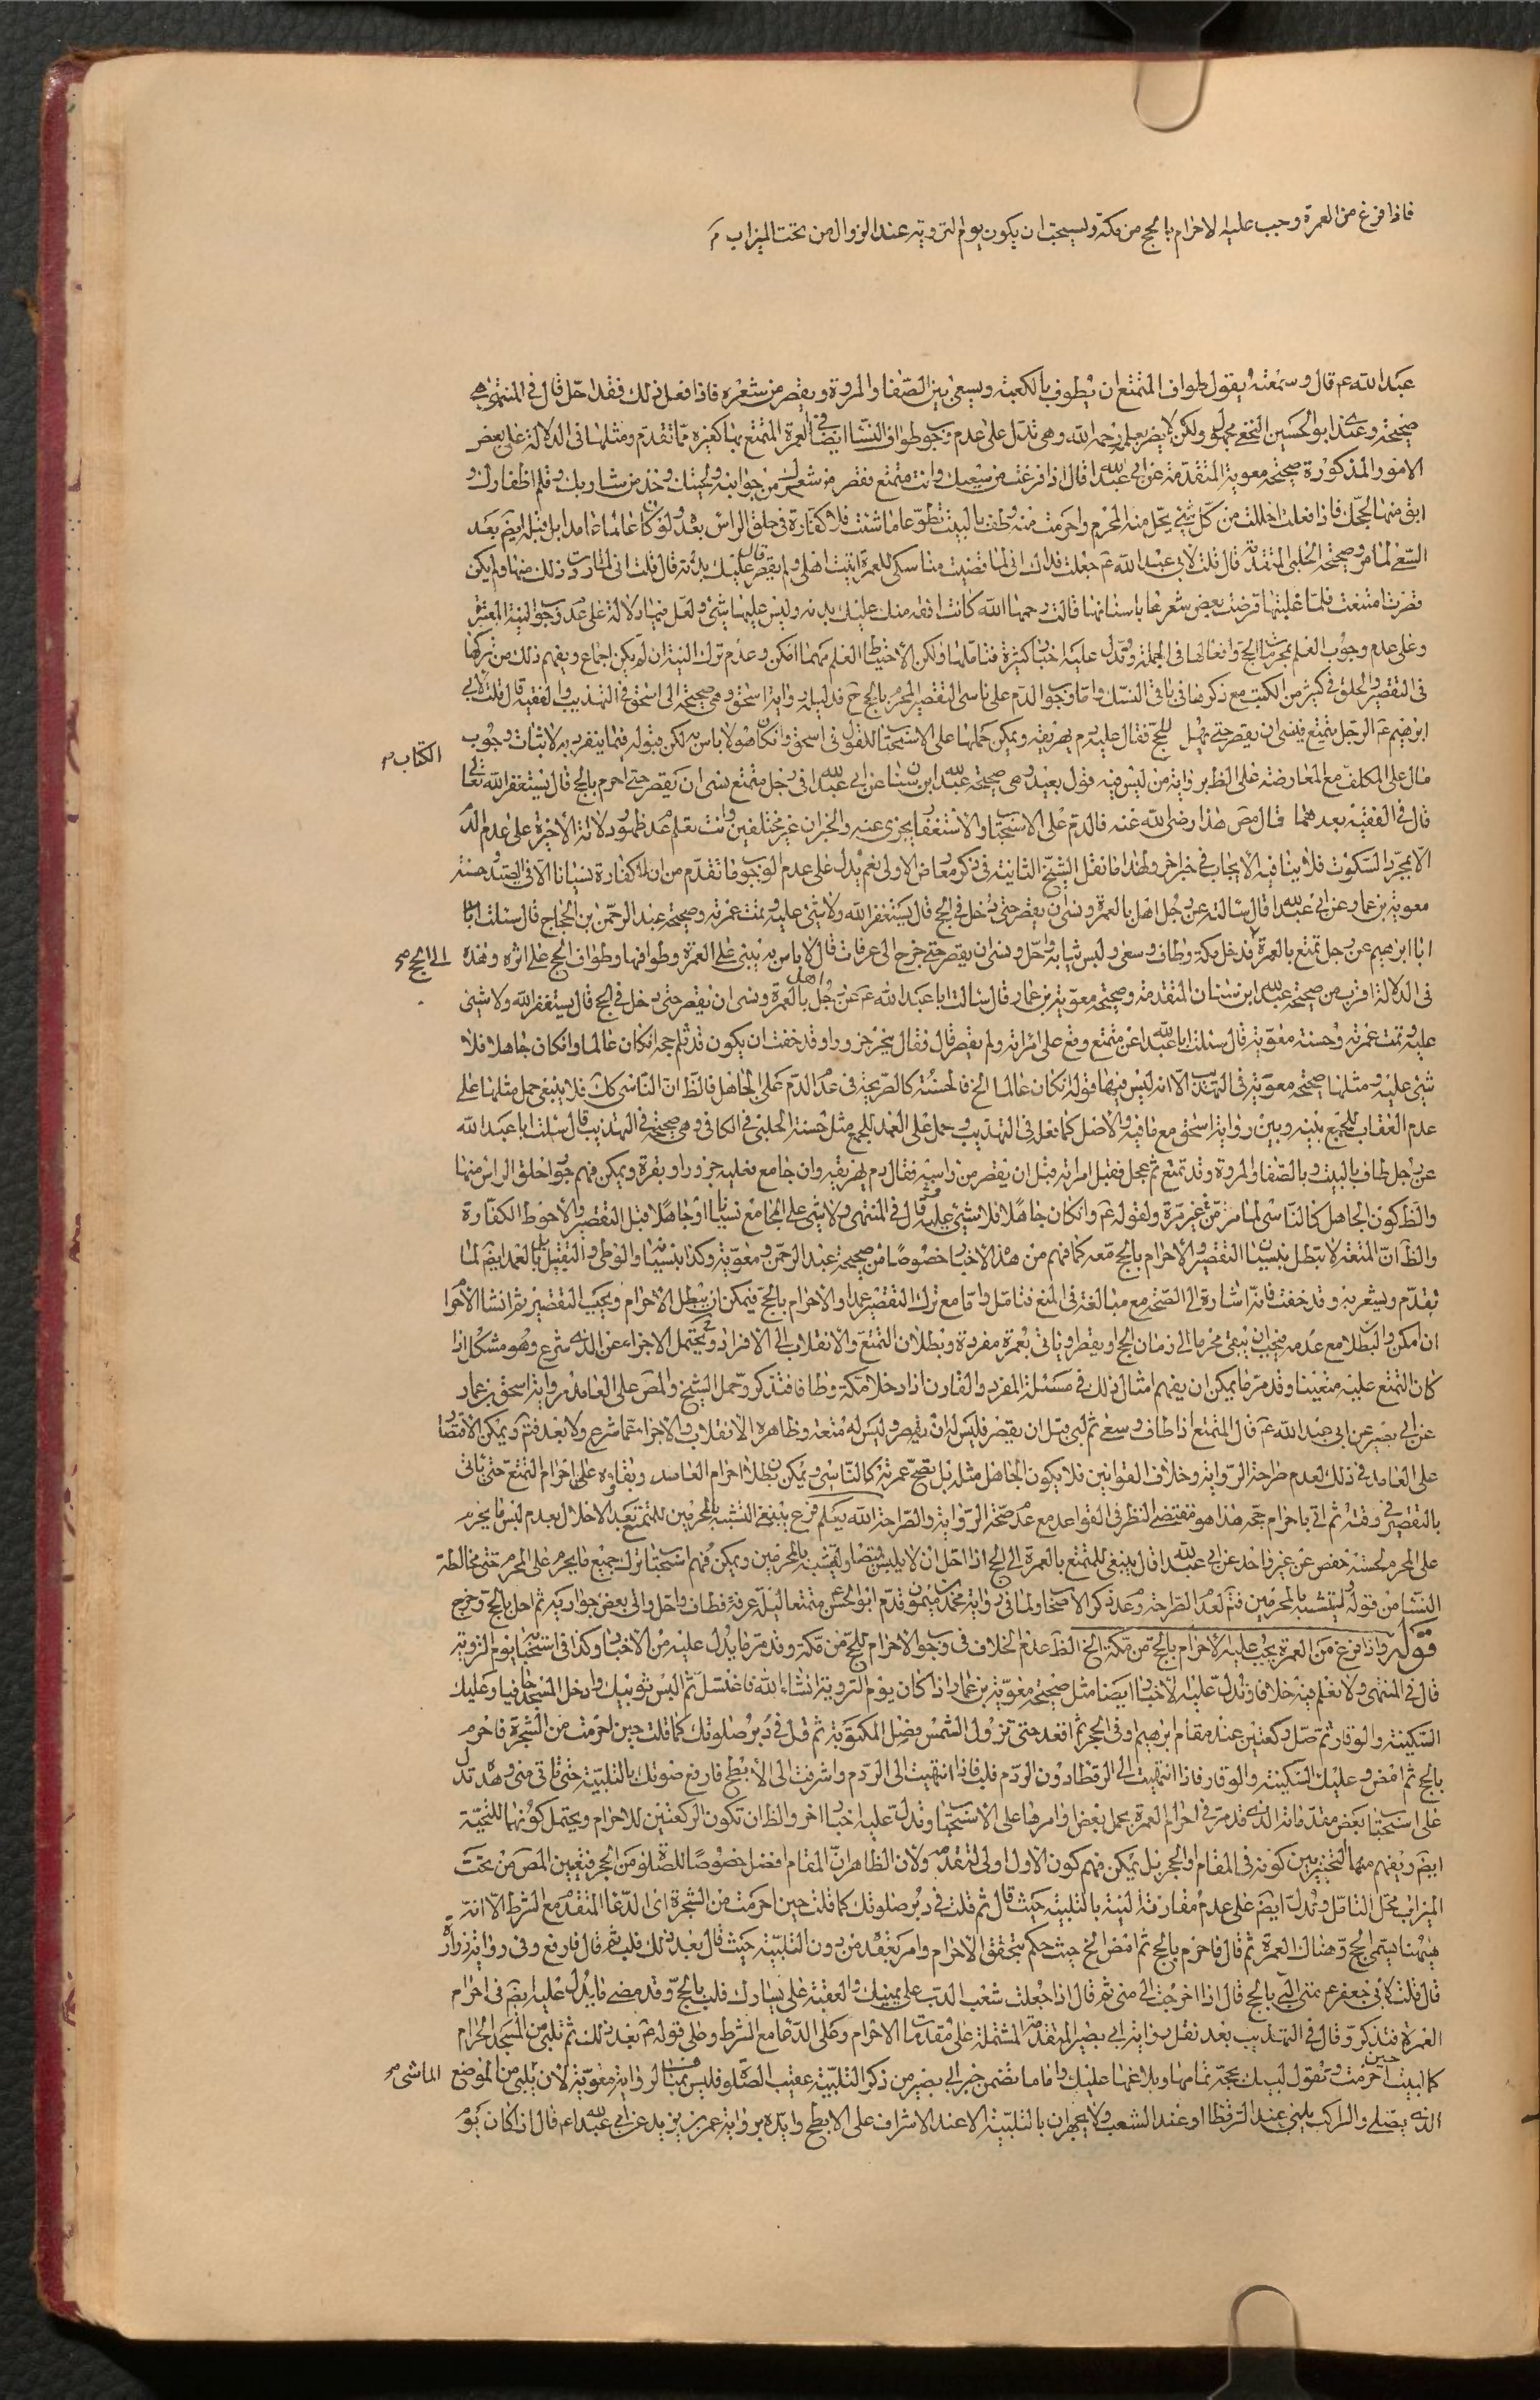 فاذا فرغ من العمرة وجب عليه الاحرام بالحج من مكة ويستحب ان يكون يوم التروية عند الزوال من تحت الميزاب
عبد الله ع قال وسمعته يقول طواف المتمتع ان يطوف بالكعبة ويسعى بين الصفا والمروة ويقصر من شعره فاذا فعل ذلك فقد احل قال في المنتهى هي
صحيحة وعندي ابو الحسين النخعي مجهول ولكن لا يضر بعلمه رحمه الله وهي تدل على عدم وجوب طواف النساء ايضا في العمرة المتمتع بها كغيره مما تقدم ومثلها في الدلالة على بعض
الامور المذكورة صحيحة معوية المتقدمة عن ابي عبد الله قال اذا فرغت من سعيك وانت متمتع فقصر من شعرك من جوانبه ولحيتك وخذ من شاربك وقلم اظفارك و
ابق منها لحجك فاذا فعلت احللت من كل شيء يحل منه المحرم واحرمت منه وطف بالبيت تطوعا ما شئت فلا كفارة في حلق الراس بعد ولو كان عالما عامدا بل قبله ايضا بعد
السعي لما مر وصحيحة الحلبي المتقدمة قال قلت لابي عبد الله ع جعلت فداك اني لما قضيت مناسكي للعمرة اتيت اهلي ولم يقصر قال عليك بدنة قال قلت اني لما اردت ذلك منها ولم يكن
قصرت امتنعت فلما غلبتها قرضت بعض شعرها باسنانها فقالت رحمها الله كانت افقه منك عليك بدنة وليس عليها شيء ولعل فيها دلالة على عدم وجوب النية المعتبرة
وعلى عدم وجوب العلم بجزئيات الحج وافعالها في الجملة وتدل عليه اخبار كثيرة فتاملها ولكن الاحتياط العلم مهما امكن وعدم ترك النية ان لم يكن اجماع ويفهم ذلك من تركها
في التقصير والحلق في كثير من الكتب مع ذكرها في باقي النسك واما وجوب الدم على ناسي التقصير المحرم بالحج ح فدليله رواية اسحق وهي صحيحة الى اسحق في التهذيب والفقيه قال قلت لابي
ابرهيم ع الرجل يتمتع فينسى ان يقصر حتى يهل للحج فقال عليه دم يهريقه ويمكن حملها على الاستحباب للقول في اسحق وان كان هو لا باس به لكن قبوله فيما ينفرد به لاثبات وجوب
مال على المكلف مع المعارضة على الظاهر برواية من ليس فيه قول بعيد وهي صحيحة عبد الله ابن سنان عن ابي عبد الله في رجل متمتع نسي ان يقصر حتى احرم بالحج قال يستغفر الله تعالى
الكتاب
قال في الفقيه بعدهما قال مص هذا رضي الله عنه فالدم على الاستحباب والاستغفار يجزي عنه والخبران غير مختلفين وانت تعلم عدم ظهور دلالة الاخيرة على عدم الدم
الا بمجرد السكوت فلا ينافيه الايجاب في خبر اخر ولهذا ما نقل الشيخ الثانية في ذكر معارض الاولى نعم يدل على عدم الوجوب ما تقدم من ان لا كفارة نسيانا الا في الصيد وحسنة
معوية بن عمار عن ابي عبد الله قال سالته عن رجل اهل بالعمرة ونسي ان يقصر حتى دخل في الحج قال يستغفر الله ولا شيء عليه وتمت عمرته وصحيحة عبد الرحمن بن الحجاج قال سئلت
ابا ابرهيم عن رجل تمتع بالعمرة الى الحج فدخل مكة وطاف وسعى ولبس ثيابه واحل ونسي ان يقصر حتى خرج الى عرفات قال لا باس به يبني على العمرة وطوافها وطواف الحج على اثره وهذه
في الدلالة اقرب من صحيحة عبد الله ابن سنان المتقدمة وصحيحة معوية بن عمار قال سالت ابا عبد الله ع عن رجل اهل بالعمرة ونسي ان يقصر حتى دخل في الحج قال يستغفر الله ولا شيء
عليه تمت عمرته وحسنة معوية قال سئلت ابا عبد الله عن متمتع وقع على امراته ولم يقصر قال فقال ينحر جزورا وقد خفت ان يكون قد ثلم حجه ان كان عالما وان كان جاهلا فلا
شيء عليه ومثلها صحيحة معوية في التهذيب الا انه ليس فيها قوله ان كان عالما الخ فالحسنة كالصريحة في عدم الدم على الجاهل فالظ ان الناسي كك فلا ينبغي حمل مثلها على
عدم العقاب للجمع بينه وبين رواية اسحق مع ما فيه والاصل كما نقل في التهذيب وحمل على العمد للجمع مثل حسنة الحلبي في الكافي وهي صحيحة في التهذيب قال سئلت ابا عبد الله
عن رجل طاف بالبيت وبالصفا والمروة وقد تمتع ثم عجل فقبل امراته قبل ان يقصر من راسه فقال دم يهريقه وان جامع فعليه جزور او بقرة ويمكن فهم جواز حلق الراس منها
والظ كون الجاهل كالناسي لما مر من غير مرة ولقوله ع وان كان جاهلا فلا شيء عليه قال في المنتهى ولا شيء على الجامع نسيانا او جاهلا قبل التقصير والاحوط الكفارة
والظ ان المتعة لا تبطل بنسيان التقصير والاحرام بالحج معه كما فهم من هذه الاخبار خصوصا من صحيحة عبد الرحمن ومعوية وكذا بنسيانه والوطي والتقبيل بل بالعمد ايضا لما
تقدم ويشعر به وقد خفت فانه اشارة الى الصحة مع مبالغة في المنع فتامل واما مع ترك التقصير عمدا والاحرام بالحج فيمكن ان يبطل الاحرام ويجب التقصير ثم انشاء الاحرام
ان امكن والبطلان مع عدمه فيجب ان يبقى محرما الى زمان الحج او يقصر وياتي بعمرة مفردة وبطلان التمتع والانقلاب الى الافراد ويحتمل الاجزاء عن الذي شرع وهو مشكل اذا
كان التمتع عليه متعينا وقد مر ما يمكن ان يفهم امثال ذلك في مسئلة المفرد والقارن اذا دخلا مكة وطافا فتذكر وحمل الشيخ والمص على العامد رواية اسحق بن عمار
عن ابي بصير عن ابي عبد الله ع قال المتمتع اذا طاف وسعى ثم لبى قبل ان يقصر فليس له ان يقصر وليس له متعة وظاهره الانقلاب والاجزاء عما شرع ولا بعد فتم ويمكن الاقتصار
على العامد في ذلك لعدم صراحة الرواية وخلاف القوانين فلا يكون الجاهل مثله بل تصح عمرته كالناسي ويمكن بطلان احرام العامد وبقاؤه على احرام التمتع حتى ياتي
بالتقصير في وقته ثم اتى باحرام حجه هذا هو مقتضى النظر في القواعد مع عدم صحة الرواية والصراحة الله يعلم فرع ينبغي التشبه بالمحرمين للمتمتع بعد الاحلال بعدم لبس ما يحرم
على المحرم لحسنة حفص عن غير واحد عن ابي عبد الله قال ينبغي للمتمتع بالعمرة الى الحج اذا احل ان لا يلبس قميصا وليتشبه بالمحرمين ويمكن فهم استحباب ترك جميع ما يحرم على المحرم حتى مخالطة
النساء من قوله وليتشبه بالمحرمين فتم لعدم الصراحة وعدم ذكر الاصحاب ولما في رواية محمد بن ميمون قدم ابو الحسن متمتعا ليلة عرفة فطاف واحل واتى بعض جواريه ثم اهل بالحج وخرج
قوله واذا فرغ من العمرة يجب عليه الاحرام بالحج من مكة الخ الظ عدم الخلاف في وجوب الاحرام للحج من مكة وقد مر ما يدل عليه من الاخبار وكذا في استحبابه يوم التروية
قال في المنتهى ولا نعلم فيه خلافا وتدل عليه الاخبار ايضا مثل صحيحة معوية بن عمار اذا كان يوم التروية انشاء الله فاغتسل ثم البس ثوبيك وادخل المسجد حافيا وعليك
السكينة والوقار ثم صل ركعتين عند مقام ابرهيم او في الحجر ثم اقعد حتى تزول الشمس فصل المكتوبة ثم قل في دبر صلوتك كما قلت حين احرمت من الشجرة فاحرم
بالحج ثم امض وعليك السكينة والوقار فاذا انتهيت الى الرقطا دون الردم فلب فاذا انتهيت الى الردم واشرفت الى الابطح فارفع صوتك بالتلبية حتى تاتي منى وهذه تدل
على استحباب بعض مقدماته الذي قد مر في احرام العمرة بحمل بعض اوامرها على الاستحباب وتدل عليه اخبار اخر والظ ان تكون الركعتين للاحرام ويحتمل كونها للتحية
ايضا ويفهم منها التخيير بين كونه في المقام او الحجر بل يمكن فهم كون الاول اولى لتقدمه ولان الظاهر ان المقام افضل خصوصا للصلوة من الحجر فتعيين المص من تحت
الميزاب محل التامل وتدل ايضا على عدم مقارنة النية بالتلبية حيث قال ثم قلت في دبر صلوتك كما قلت حين احرمت من الشجرة اي الدعا المتقدم مع الشرط الا انه
هيهنا يسمى الحج وهناك العمرة ثم قال فاحرم بالحج ثم امض الخ حيث حكم بتحقق الاحرام وامر بعقده من دون التلبية حيث قال بعد ذلك فلب ثم قال فارفع وفي رواية زرارة
قال قلت لابي جعفر ع متى البي بالحج قال اذا خرجت الى منى ثم قال اذا جعلت شعب الدب على يمينك والعقبة على يسارك فلب بالحج وقد مضى ما يدل عليه ايضا في احرام
العمرة فتذكر وقال في التهذيب بعد نقل رواية ابي بصير المتقدمة المشتملة على مقدمات الاحرام وعلى الدعا مع الشرط وعلى قوله ع بعد ذلك ثم تلبي من المسجد الحرام
كما لبيت حين احرمت وتقول لبيك بحجة تمامها وبلاغها عليك واما ما تضمن خبر ابي بصير من ذكر التلبية عقيب الصلوة فليس بمناف لرواية معوية لان يلبي من الموضع
الماشي
الذي يصلي والراكب يلبي عند الرقطا او عند الشعب ولا يجهران بالتلبية الا عند الاشراف على الابطح وايده برواية عمر بن يزيد عن ابي عبد الله ع قال اذا كان يوم